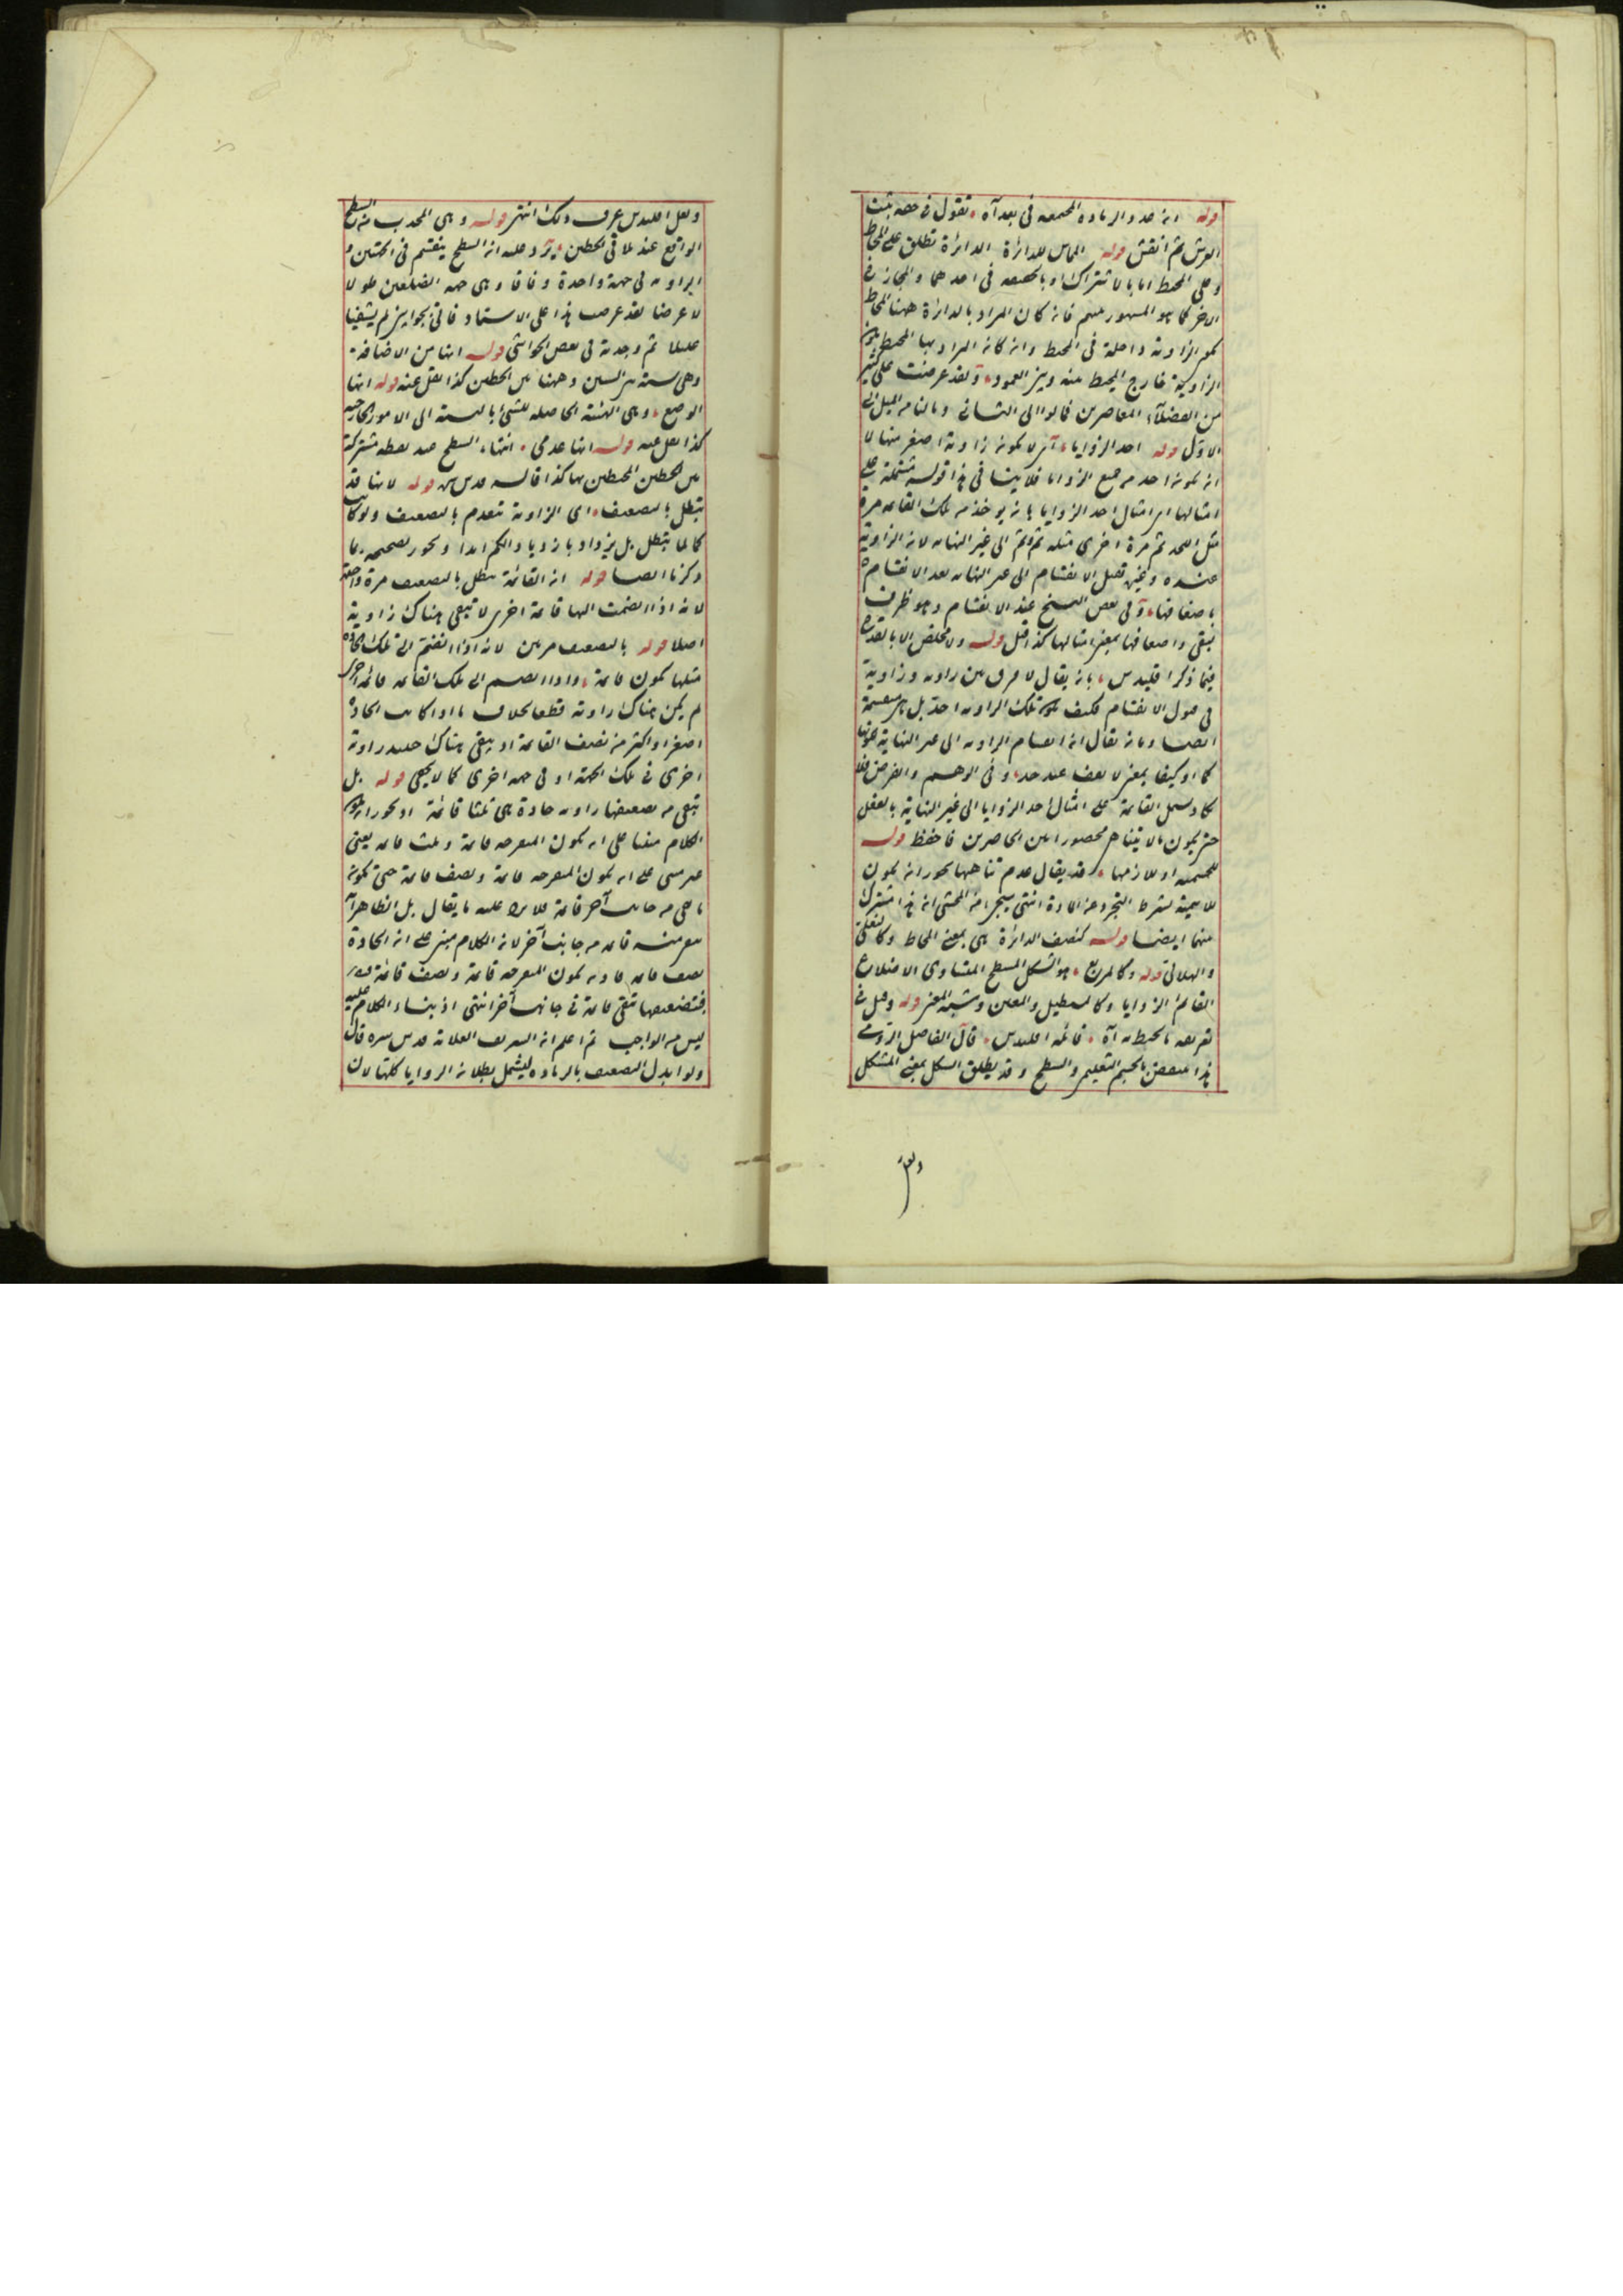 قوله انه حد والزيادة المجتمعة في بعد آه نقول في حقه ثبت
العرش ثم انقش قوله المماس للدائرة الدائرة تطلق على المحاط
وعلى المحيط اما بالاشتراك او بالحقيقة في احدهما والمجاز في
الآخر كما هو المشهور منهم فان كان المراد بالدائرة ههنا المحاط
الزاوية داخلة في المحيط وان كان المراد بها المحيط يكون
الزاوية خارج المحيط منه وبين العمود ولقد عرضت على كثير
من الفضلاء المعاصرين فمالوا الى الثاني ومالنا من الميل الى
الاول قوله احد الزوايا اى لا يكون زاوية اصغر منها لا
انه يكون احد من جميع الزوايا فلا ينافى هذا قوله مشتملة على
امثالها اى امثال احد الزوايا بان يوخذ من تلك القائمة مرة
مثل الحد ثم مرة اخرى مثله ثم وثم الى غير النهاية لان الزاوية
عنده وغيره تقبل الانقسام الى غير النهاية بعد الانقسام
باضعافها وفي بعض النسخ عند الانقسام وهو ظرف
تبقى واضعافها بمعنى امثالها كذا قيل قوله ولا مخلص الا بالقدح
فيما ذكر اقليدس بان يقال لا فرق بين زاوية وزاوية
في قبول الانقسام فكيف تكون تلك الزاوية احد بل هي منقسمة
ايضا وبان يقال ان انقسام الزاوية الى غير النهاية
بمعنى لا يقف عند حد وفي الوهم والفرض فلا
القائمة على امثال احد الزوايا الى غير النهاية بالفعل
حتى يكون مالا يتناهى محصورا بين الحاصرين فاحفظ قوله
للجسمية او للازمها قد يقال عدم تناهيها يجوز ان يكون
للاهية بشرط التجرد عن المادة انتهى سيجئ من المحشى ان هذا مشترك
منهما ايضا قوله كنصف الدائرة هى بمعنى المحاط
والهلالى قوله وكالمربع هو الشكل المسطح المتساوى الاضلاع
القائم الزوايا وكالمستطيل والمعين وشبه المعين قوله وقيل في
تعريفه ما يحيط به آه قائله اقليدس قال الفاضل الرومى
هذا منقوض بالجسم التعليمى والسطح وقد يطلق الشكل بمعنى المشكل
ولعل اقليدس عرف ذلك انتهى قوله وهى المحدب من السطح
الواقع عند ملاقى الخطين يرد عليه ان السطح ينقسم في الجهتين و
الزاوية في جهة واحدة وفاقا وهى جهة الضلعين طولا
لا عرضا لقد عرضت هذا على الاستاد فاتى بجوابين لم يشفيا
عليلا ثم وجدته في بعض الحواشى قوله انها من الاضافة
وهى نسبة بين الشيئين وههنا بين الخطين كذا نقل عنه قوله انها
الوضع وهى الهيئة الحاصلة للشئ بالنسبة الى الامور الخارجية
كذا نقل عنه قوله انها عدمى انتهاء السطح عند نقطة مشتركة
بين الخطين المحيطين بها كذا قاله قدس سره قوله لانها قد
تبطل بالتضعيف اى الزاوية تنعدم بالتضعيف ولو كانت
كما لما بتطل بل يزداد بازدياد الكم ابدا ويجوز تصحيحه بما
ذكرنا ايضا قوله ان القائمة تبطل بالتضعيف مرة واحدة
لانه اذا انضمت اليها قائمة اخرى لا تبقى هناك زاوية
اصلا قوله بالتضعيف مرتين لانه اذا انضم الى تلك الحادة
مثلها يكون قائمة واذا انضم الى تلك القائمة قائمة اخرى
لم يكن هناك زاوية قطعا بخلاف ما اذا كانت الحادة
اصغر او اكثر من نصف القائمة اذ يبقى هناك حينئذ زاوية
اخرى في تلك الجهة او في جهة اخرى كما لا يخفى قوله بل
تبقى من تضعيفها زاوية حادة هى ثلثا قائمة او يجوز ان يكون
الكلام مبنيا على ان يكون المنفرجة قائمة وثلث قائمة يعنى
غير مبنى على ان يكون المنفرجة قائمة ونصف قائمة حتى يكون
ما بقى من جانب آخر قائمة فلا يرد عليه ما يقال بل الظاهر ان
قائمة من جانب آخر لان الكلام مبنى على ان الحادة
نصف قائمة فاذن يكون المنفرجة قائمة ونصف قائمة
فبتضعيفها تبقى قائمة في جانب آخر انتهى اذ بناء الكلام عليه
ليس من الواجب ثم اعلم ان الشريف العلامة قدس سره قال
ولو ابدل التضعيف بالزيادة ليشمل بطلان الزوايا كلها لان